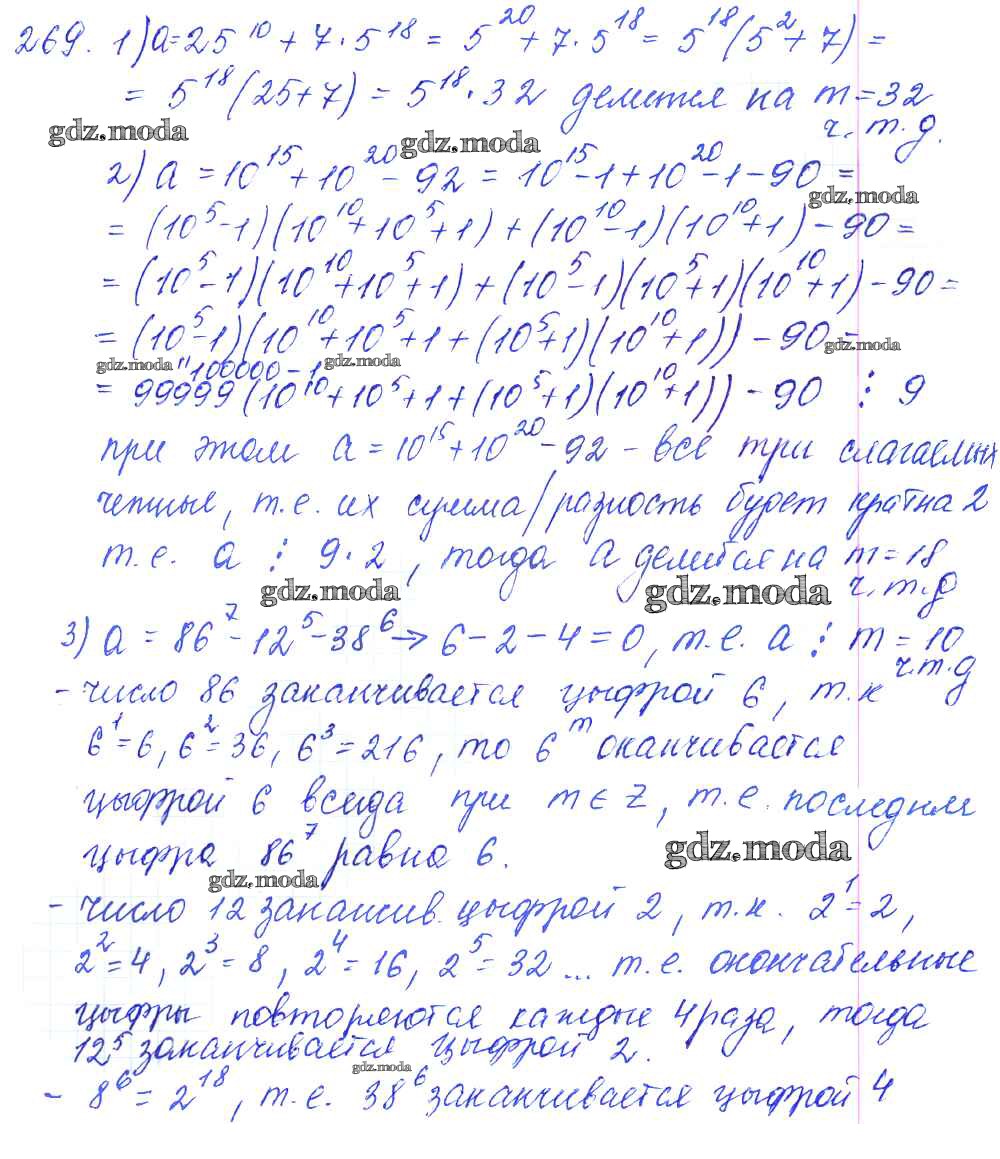 269. 1) a = 25^10 + 7·5^18 = 5^20 + 7·5^18 = 5^18(5^2 + 7) =
= 5^18(25+7) = 5^18·32 делится на m = 32
ч. т. д.
gdz.moda
gdz.moda
2) a = 10^15 + 10^20 - 92 = 10^15 - 1 + 10^20 - 1 - 90 =
gdz.moda
= (10^5 - 1)(10^10 + 10^5 + 1) + (10^10 - 1)(10^10 + 1) - 90 =
= (10^5 - 1)(10^10 + 10^5 + 1) + (10^5 - 1)(10^5 + 1)(10^10 + 1) - 90 =
= (10^5 - 1)(10^10 + 10^5 + 1 + (10^5 + 1)(10^10 + 1)) - 90 =
gdz.moda
gdz.moda
gdz.moda
" 100000 - 1
= 99999(10^10 + 10^5 + 1 + (10^5 + 1)(10^10 + 1)) - 90 ⋮ 9
при этом a = 10^15 + 10^20 - 92 - все три слагаемых
четные, т.е. их сумма/разность будет кратна 2
т.е. a ⋮ 9·2, тогда a делится на m = 18
ч. т. д
gdz.moda
gdz.moda
3) a = 86^7 - 12^5 - 38^6 → 6 - 2 - 4 = 0, т.е. a ⋮ m = 10
ч.т.д
- число 86 заканчивается цыфрой 6, т.к
6^1 = 6, 6^2 = 36, 6^3 = 216, то 6^m оканчивается
цыфрой 6 всегда при m ∈ Z, т.е. последняя
цыфра 86^7 равна 6.
gdz.moda
gdz.moda
- число 12 заканчив. цыфрой 2, т.к. 2^1 = 2,
2^2 = 4, 2^3 = 8, 2^4 = 16, 2^5 = 32 ... т.е. окончательные
цыфры повторяются каждые 4 раза, тогда
12^5 заканчивается цыфрой 2.
gdz.moda
- 8^6 = 2^18, т.е. 38^6 заканчивается цыфрой 4